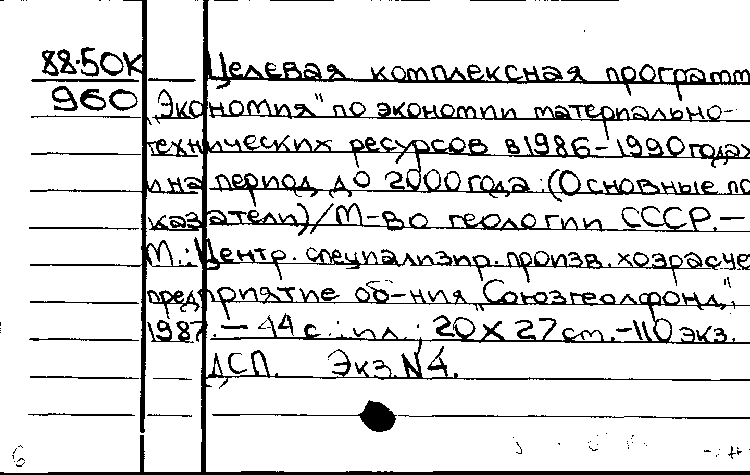 88-50К Целевая комплексная программ
960 „Экономия" по экономии материально-
технических ресурсов в 1986-1990 годах
и на период до 2000 года: (Основные по
казатели) / М-во геологии СССР. —
М.: Центр. специализир. произв. хозрасче
предприятие об-ния „Союзгеолфонд",
1987. — 44 с.: ил.; 20 X 27 cm. - 110 экз.
ДСП. Экз. N4.
6